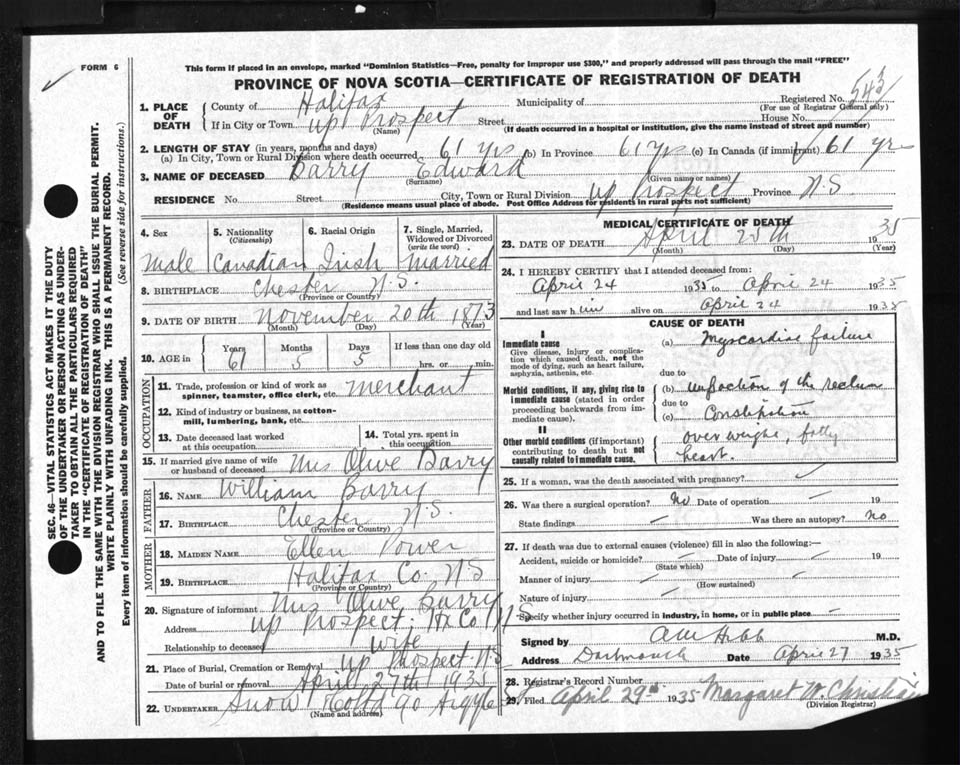 FORM 6
This form if placed in an envelope, marked "Dominion Statistics—Free, penalty for improper use $300," and properly addressed will pass through the mail "FREE"
PROVINCE OF NOVA SCOTIA—CERTIFICATE OF REGISTRATION OF DEATH
Registered No. 543
(For use of Registrar General only)
1. PLACE OF DEATH
County of Halifax Municipality of
If in City or Town Up Prospect Street House No.
(Name) (If death occurred in a hospital or institution, give the name instead of street and number)
2. LENGTH OF STAY (in years, months and days)
(a) In City, Town or Rural Division where death occurred 61 yrs (b) In Province 61 yrs (c) In Canada (if immigrant) 61 yrs
3. NAME OF DECEASED Barry Edward
(Surname) (Given name or names)
RESIDENCE No. Street City, Town or Rural Division Up Prospect Province N.S
(Residence means usual place of abode. Post Office Address for residents in rural parts not sufficient)
4. Sex
Male
5. Nationality
(Citizenship)
Canadian
6. Racial Origin
Irish
7. Single, Married, Widowed or Divorced
(write the word)
Married
8. BIRTHPLACE Chester N.S.
(Province or Country)
9. DATE OF BIRTH November 20th 1873
(Month) (Day) (Year)
10. AGE in
Years Months Days If less than one day old
61 5 5 hrs. or min.
OCCUPATION
11. Trade, profession or kind of work as spinner, teamster, office clerk, etc. Merchant
12. Kind of industry or business, as cotton-mill, lumbering, bank, etc.
13. Date deceased last worked at this occupation
14. Total yrs. spent in this occupation
15. If married give name of wife or husband of deceased Mrs Olive Barry
FATHER
16. NAME William Barry
17. BIRTHPLACE Chester N.S.
(Province or Country)
MOTHER
18. MAIDEN NAME Ellen Power
19. BIRTHPLACE Halifax Co. N S
(Province or Country)
20. Signature of informant Mrs Olive Barry
Address Up Prospect, Hx Co N S
Relationship to deceased Wife
21. Place of Burial, Cremation or Removal Up Prospect N S
Date of burial or removal April 27th 1935
22. UNDERTAKER Snow
(Name and address)
MEDICAL CERTIFICATE OF DEATH
23. DATE OF DEATH April 25th 1935
(Month) (Day) (Year)
24. I HEREBY CERTIFY that I attended deceased from:
April 24 1935 to April 24 1935
and last saw him alive on April 24 1935
CAUSE OF DEATH
I
Immediate cause
Give disease, injury or complication which caused death, not the mode of dying, such as heart failure, asphyxia, asthenia, etc.
(a) Myocardial failure
due to
Morbid conditions, if any, giving rise to immediate cause (stated in order proceeding backwards from immediate cause).
(b) of the rectum
due to
(c) Constipation
II
Other morbid conditions (if important) contributing to death but not causally related to immediate cause.
over weight, fatty
heart.
25. If a woman, was the death associated with pregnancy?
26. Was there a surgical operation? No Date of operation 19
State findings Was there an autopsy? No
27. If death was due to external causes (violence) fill in also the following:—
Accident, suicide or homicide? Date of injury 19
(State which)
Manner of injury
(How sustained)
Nature of injury
Specify whether injury occurred in industry, in home, or in public place
Signed by M.D.
Address Dartmouth Date April 27 1935
28. Registrar's Record Number
29. Filed April 29th 1935 Margaret M. Christian
(Division Registrar)
SEC. 46—VITAL STATISTICS ACT MAKES IT THE DUTY
OF THE UNDERTAKER OR PERSON ACTING AS UNDER-
TAKER TO OBTAIN ALL THE PARTICULARS REQUIRED
IN THE "CERTIFICATE OF REGISTRATION OF DEATH"
AND TO FILE THE SAME WITH THE DIVISION REGISTRAR WHO SHALL ISSUE THE BURIAL PERMIT.
WRITE PLAINLY WITH UNFADING INK. THIS IS A PERMANENT RECORD.
Every item of information should be carefully supplied. (See reverse side for instructions.)